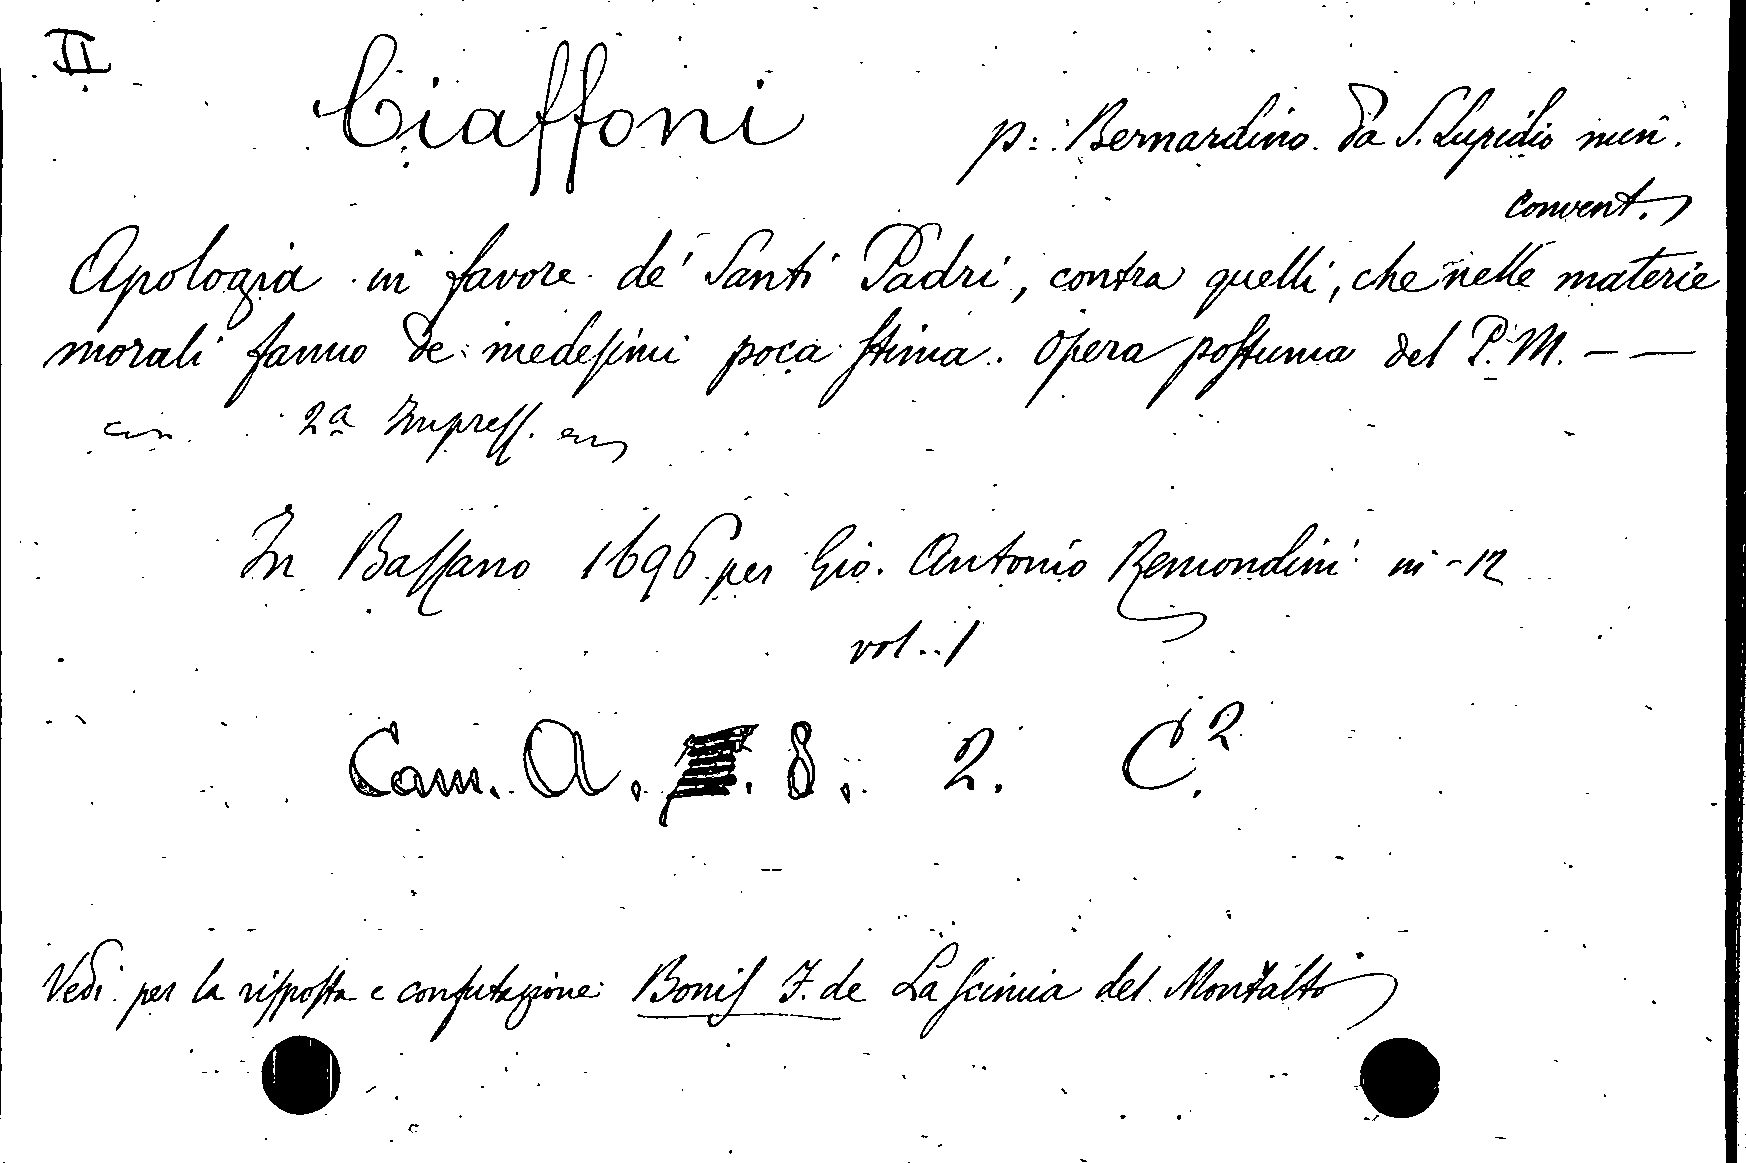 II
Ciaffoni p: Bernardino da S. Lupidio min.
convent.
Apologia in favore de' Santi Padri, contra quelli, che nelle materie
morali fanno de medesimi poca stima. Opera postuma del P. M. — —
2a Impress.
In Bassano 1696 per Gio. Antonio Remondini in-12
vol. 1
Cam. A. 8. 2. C.2
Vedi per la risposta e confutazione Bonis F. de La scimia del Montalto